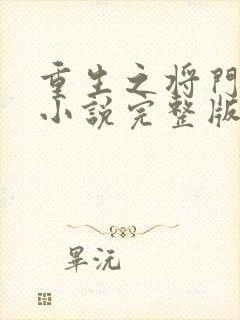 重生之将門
小說完整版
畢沅